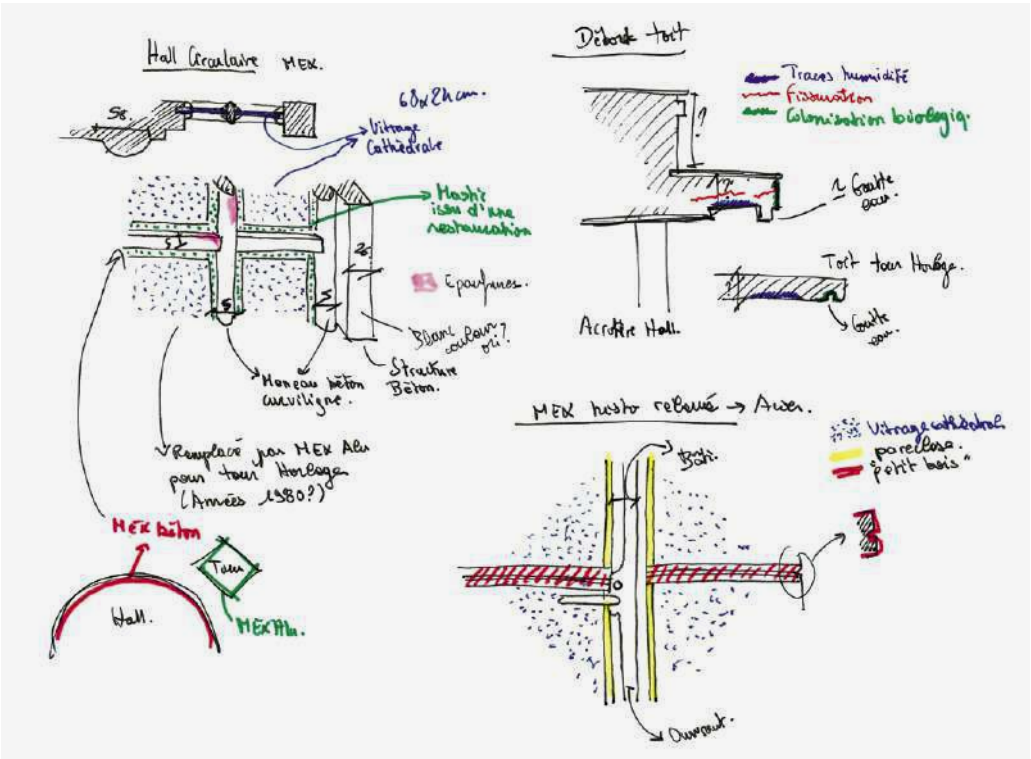 Hall Circulaire MEX.
58.
68x24 cm.
Vitrage
Cathédrale
Mastic
issu d'une
restauration
5
5
5
26
Epaufrures.
Blanc
couleur
ori?
Structure
Béton.
Meneau béton
curviligne.
Remplacé par MEX Alu
pour tour Horloge
(Années 1980?)
MEX Béton
Tour
Hall.
MEX Alu.
Débord toit
Traces humidité
Fissuration
Colonisation biologiq.
?
?
Goutte
eau.
Toit tour Horloge.
?
Goutte
eau.
Acrotère Hall.
MEX histo relevé → Acier.
Bâti.
Vitrage cathédral
parclose.
"petit bois"
Ouvrant.